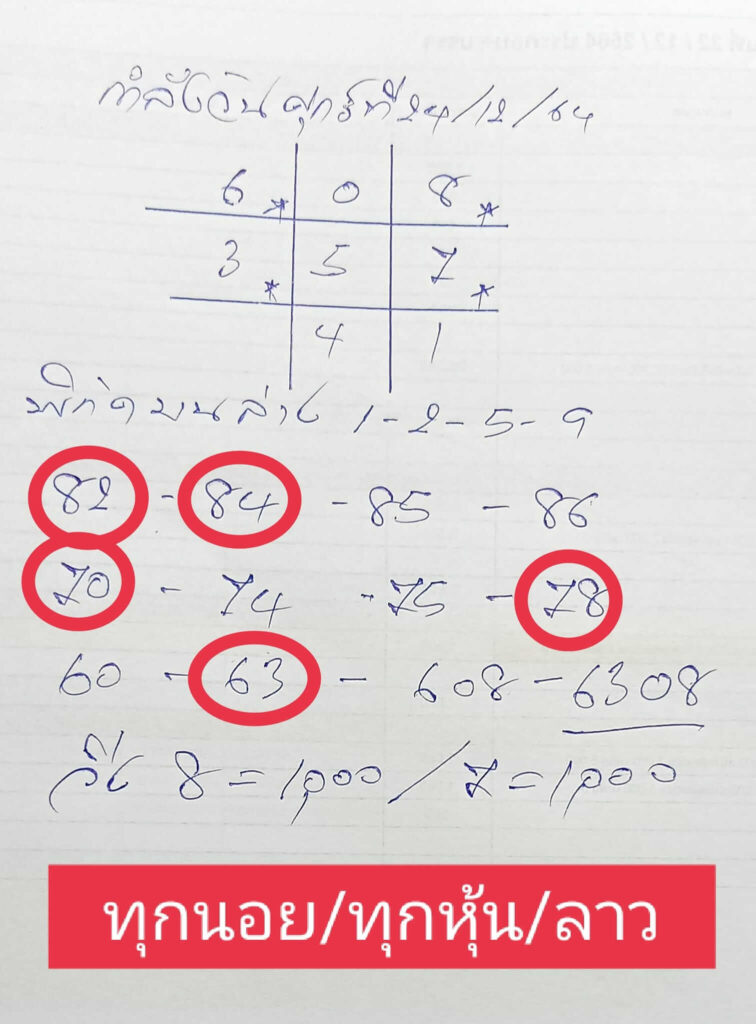 กำลังวันศุกร์ที่ 24/12/64
6* 0 8*
3* 5 7*
4 1
พิกัดบนล่าง 1-2-5-9
82 - 84 - 85 - 86
70 - 74 - 75 - 78
60 - 63 - 608 - 6308
วิ่ง 8 = 1,000 / 7 = 1,000
ทุกนอย/ทุกหุ้น/ลาว